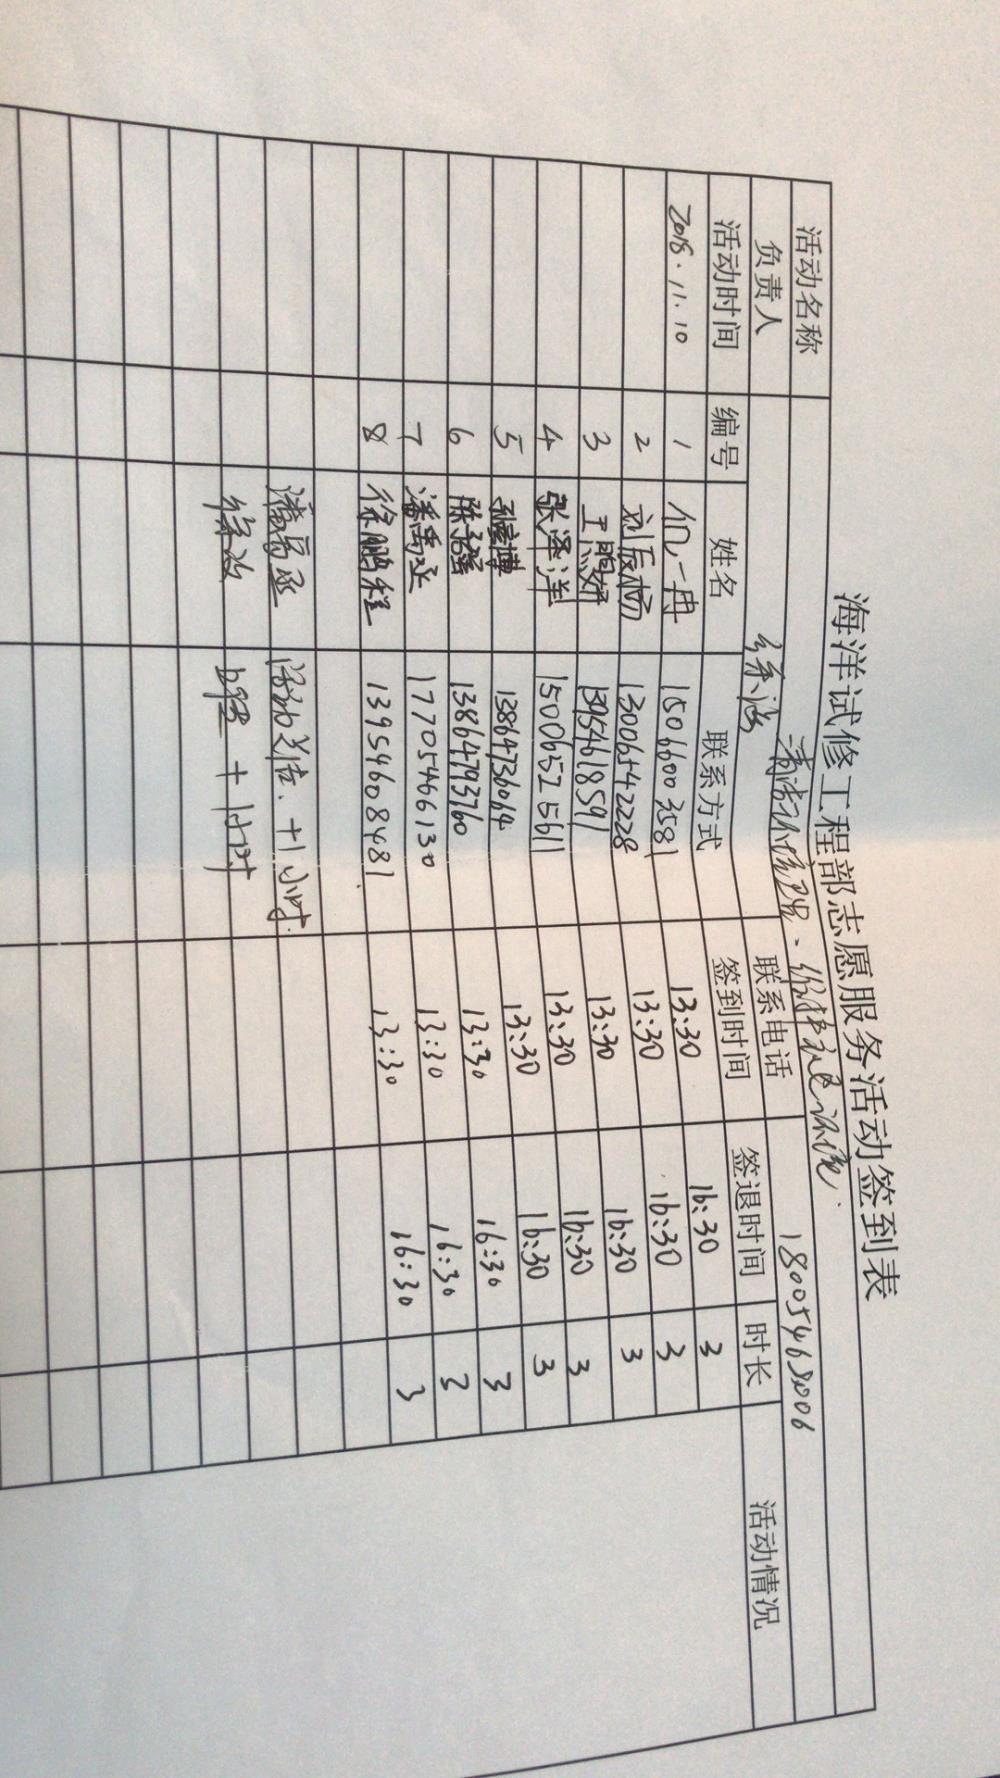 海洋试修工程部志愿服务活动签到表
活动名称 清洁环境卫生、保护
负责人 徐涵 联系电话 18005463006
活动时间 编号 姓名 联系方式 签到时间 签退时间 时长 活动情况
2018.11.10 1 一冉 13:30 16:30 3
2 刘辰杨 13006542228 13:30 16:30 3
3 王熙妍 13954618591 13:30 16:30 3
4 张泽洋 15006525611 13:30 16:30 3
5 13864736064 13:30 16:30 3
6 13864793760 13:30 16:30 3
7 潘禹丞 17705466130 13:30 16:30 3
8 徐鹏程 13954608481 13:30 16:30 3
潘禹丞 活动总结.+1小时.
徐涵 +1小时